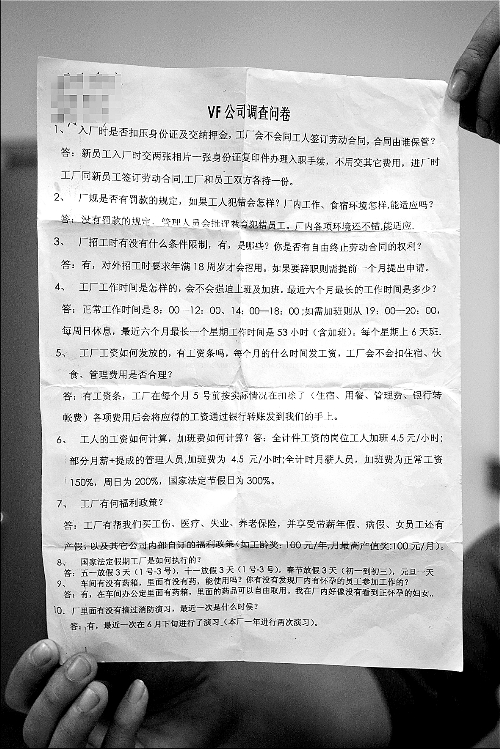 VF公司调查问卷
1、入厂时是否扣压身份证及交纳押金，工厂会不会同工人签订劳动合同，合同由谁保管？
答：新员工入厂时交两张相片一张身份证复印件办理入职手续，不用交其它费用，进厂时
工厂同新员工签订劳动合同，工厂和员工双方各持一份。
2、厂规是否有罚款的规定，如果工人犯错会怎样？厂内工作、食宿环境怎样，能适应吗？
答：没有罚款的规定、管理人员会批评教育犯错员工。厂内各项环境还不错，能适应.
3、厂招工时有没有什么条件限制，有，是哪些？你是否有自由终止劳动合同的权利？
答：有，对外招工时要求年满18周岁才会招用。如果要辞职则需提前一个月提出申请。
4、工厂工作时间是怎样的，会不会强迫上班及加班。最近六个月最长的工作时间是多少？
答：正常工作时间是8：00—12：00、14：00—18：00；如需加班则从19：00—20：00，
每周日休息，最近六个月最长一个星期工作时间是53小时（含加班）；每个星期上6天班.
5、工厂工资如何发放的，有工资条吗，每个月的什么时间发工资，工厂会不会扣住宿、伙
食、管理费用是否合理？
答：有工资条，工厂在每个月5号前按实际情况在扣除了（住宿、用餐、管理费、银行转
帐费）各项费用后会将应得的工资通过银行转账发到我们的手上。
6、工人的工资如何计算，加班费如何计算？答：全计件工资的岗位工人加班4.5元/小时；
部分月薪+提成的管理人员，加班费为4.5元/小时；全计时月薪人员，加班费为正常工资
150%，周日为200%，国家法定节假日为300%。
7、工厂有何福利政策？
答：工厂有帮我们买工伤、医疗、失业、养老保险，并享受带薪年假、病假、女员工还有
产假；以及其它公司内部自订的福利政策（如工龄奖：100元/年，月最高产值奖：100元/月）。
8、国家法定假期工厂是如何执行的？
答：五一放假3天（1号-3号），十一放假3天（1号-3号），春节放假3天（初一到初三），元旦一天
9、车间有没有药箱，里面有没有药，能使用吗？你有没有发现厂内有怀孕的员工参加工作的？
答：有，在车间办公定里面有药箱，里面的药品可以自由取用。我在厂内好像没有看到正怀孕的妇女。
10、厂里面有没有搞过消防演习，最近一次是什么时侯？
答：有，最近一次在6月下旬进行了演习（本厂一年进行两次演习）。